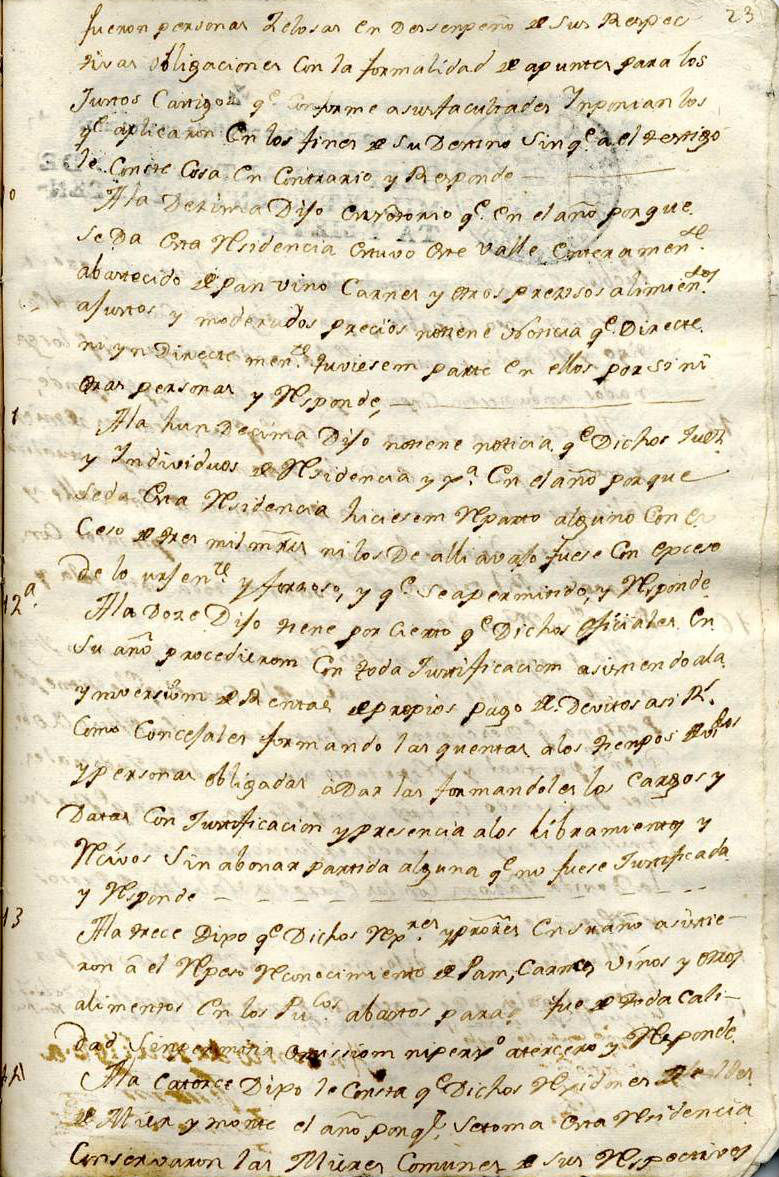 23
fueron personas Zelosas en Dessenpeño de sus Respec
tivas obligaciones Con la formalidad de apuntes para los
Justos Castigos qe. Conforme asusfacultades Inponian los
qe aplicaron En los fines de su Destino Sin qe. a el testigo
le Conste Cosa En Contrario y Responde
10
Ala Dezima Dijo qe. En el año porque
se Da esta Rsidencia estuvo este Valle Enteramente.
abastecido de pan vino Carnes y otros prezisos alimientos
ajustos y moderados precios notiene Noticia qe. Directe
ni yn Directemente. tuviesem parte En ellos porsi ni
otras personas y Rsponde,
11
Ala hun Decima Dijo notiene noticia qe Dichos Juezs.
y Individuos de Rsidencia En el año porque
seda Esta Rsidencia hiciesem Rparto alguno Con ex
Ceso de tres mil mrs ni los De alli avajo fuese Con exceso
de lo ursente y forzoso, y qe. y Rsponde
12a.
Ala Doze Dijo tiene por Cierto qe Dichos oficiales En
Su año procedierom Con toda Justificaciom asistiendo ala
ynversiom de Rentas de propios pago de Devitos asi Rs.
Como Concejales formando las quentas alos tienpos
y personas obligadas aDar las formandoles los Cargos y
Datas Con Justificacion y presencia alos libramientos y
Rcivos Sin abonar partida alguna qe no fuese Justificada
y Rsponde
13
Ala trece Dijo qe Dichos Rxres y Prores En su año asistie-
ron a el Rpeso Rconocimiento de Pam, Carnes Vinos y otros
alimentos En los Pucos abastos para fue de toda Cali-
dad Sin permitir omissiom ni perjo atercero y Rsponde
14
Ala Catorce Dijo le Consta qe Dichos Rxidores
de Mier y monte el año porqe. Setoma esta Rsidencia
Conservaron las Mieres Comunes de sus Rspectivos